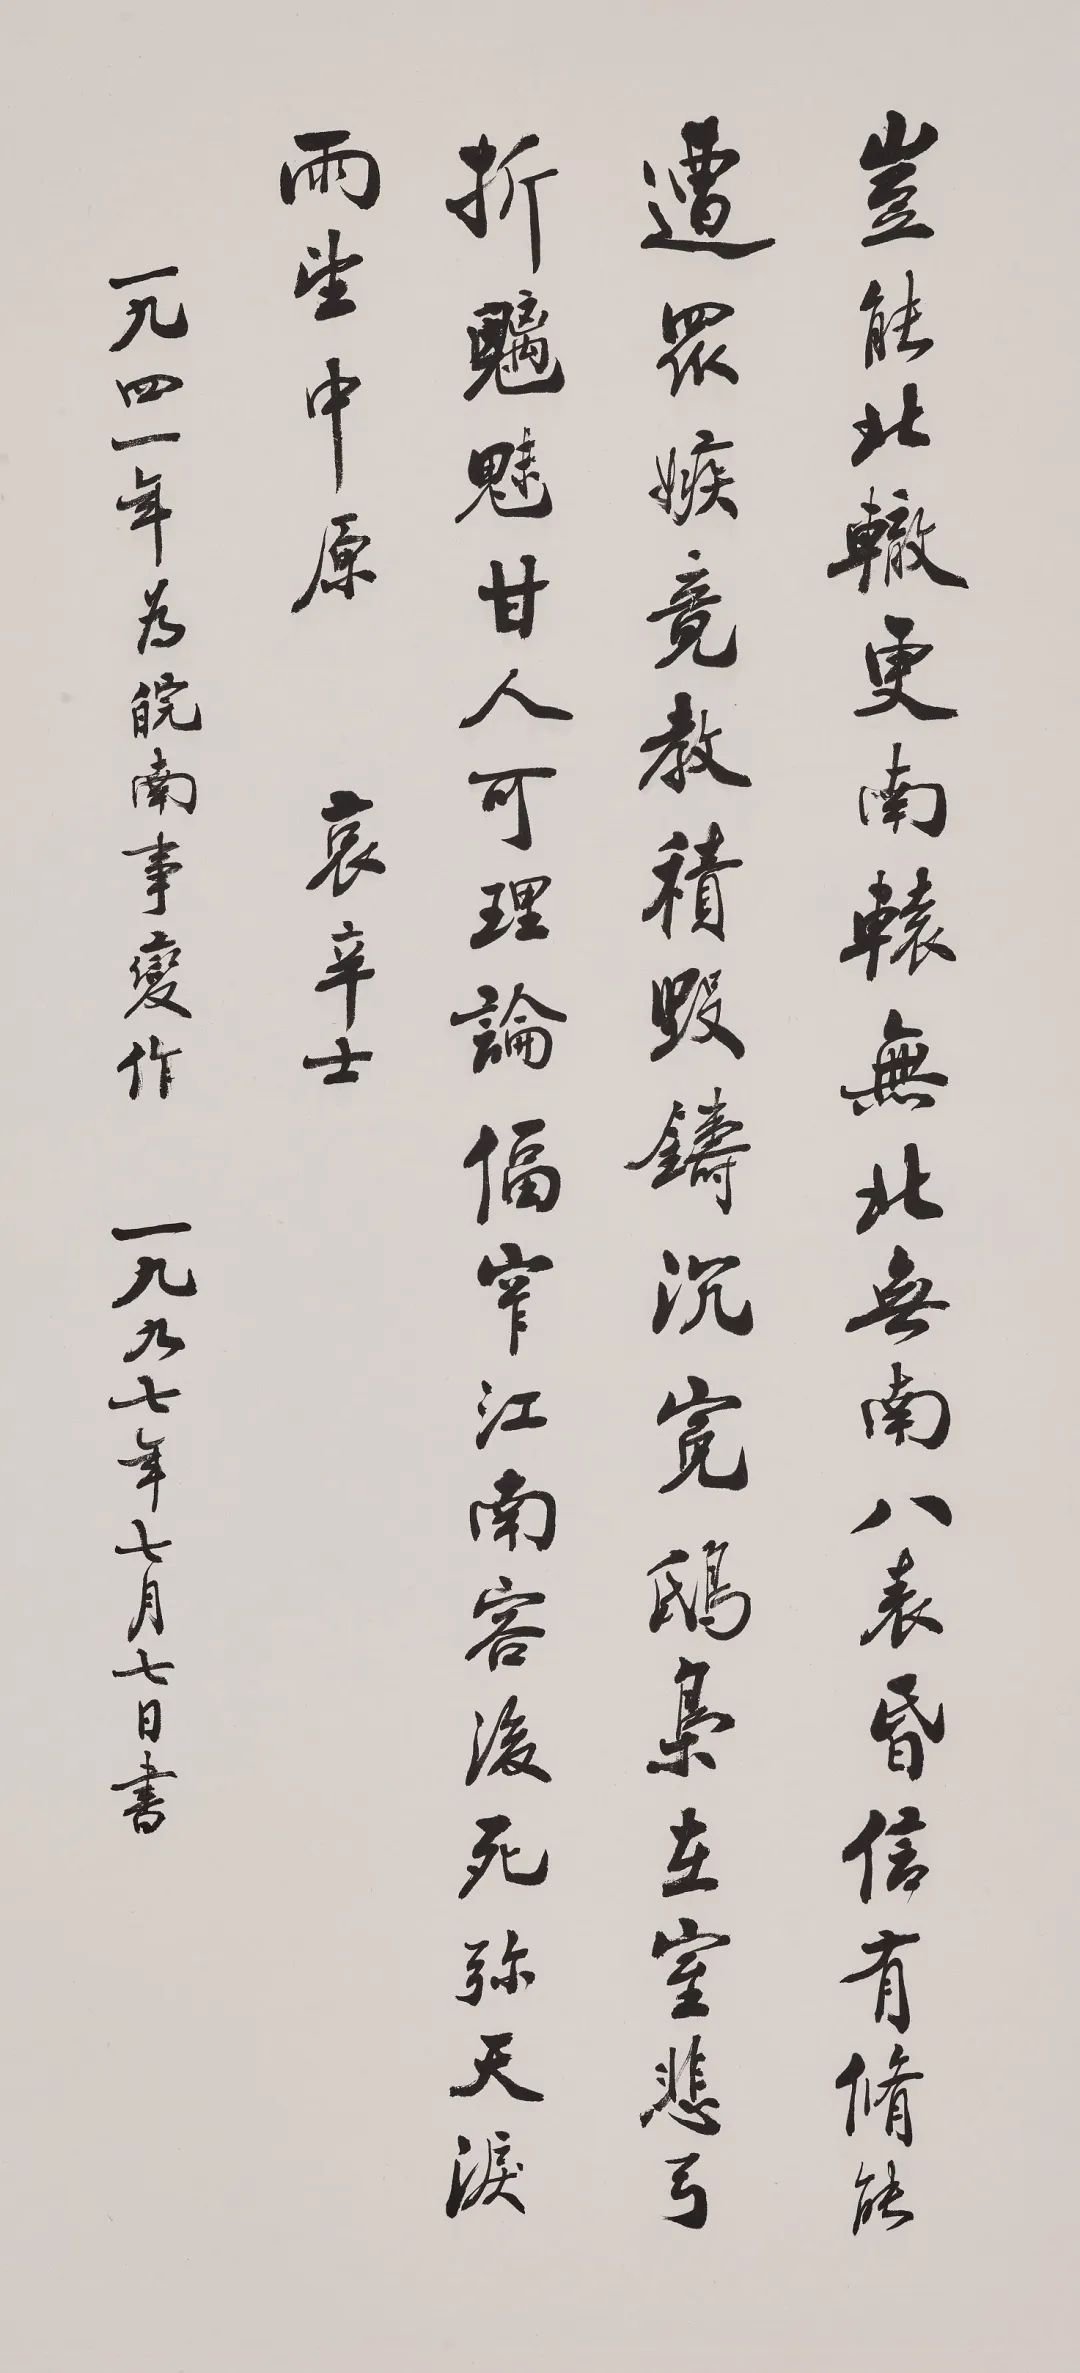 豈能北轍更南轅無北無南八表昏信有脩能
遭眾嫉竟教積毀鑄沉冤鴟梟在室悲弓
折魑魅甘人可理論偪窄江南容後死弥天淚
雨望中原　哀辛士
一九四一年为皖南事變作　一九九七年七月七日書